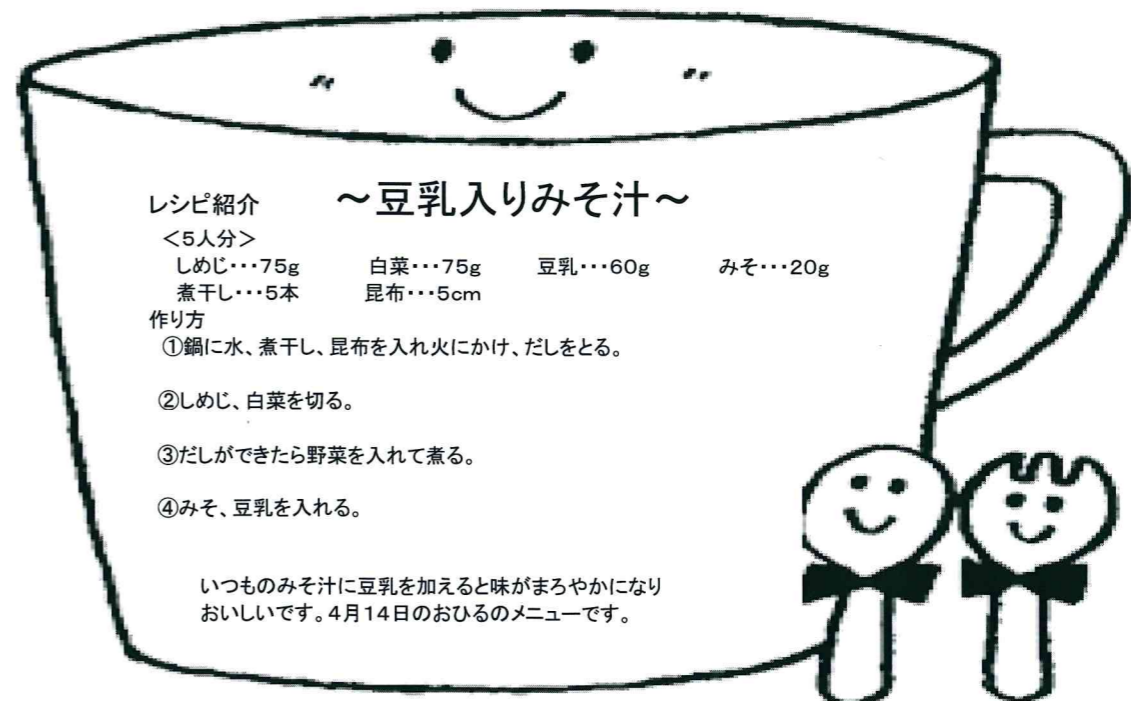 レシピ紹介　～豆乳入りみそ汁～
＜5人分＞
しめじ・・・75g　白菜・・・75g　豆乳・・・60g　みそ・・・20g
煮干し・・・5本　昆布・・・5cm
作り方
①鍋に水、煮干し、昆布を入れ火にかけ、だしをとる。
②しめじ、白菜を切る。
③だしができたら野菜を入れて煮る。
④みそ、豆乳を入れる。
いつものみそ汁に豆乳を加えると味がまろやかになり
おいしいです。4月14日のおひるのメニューです。